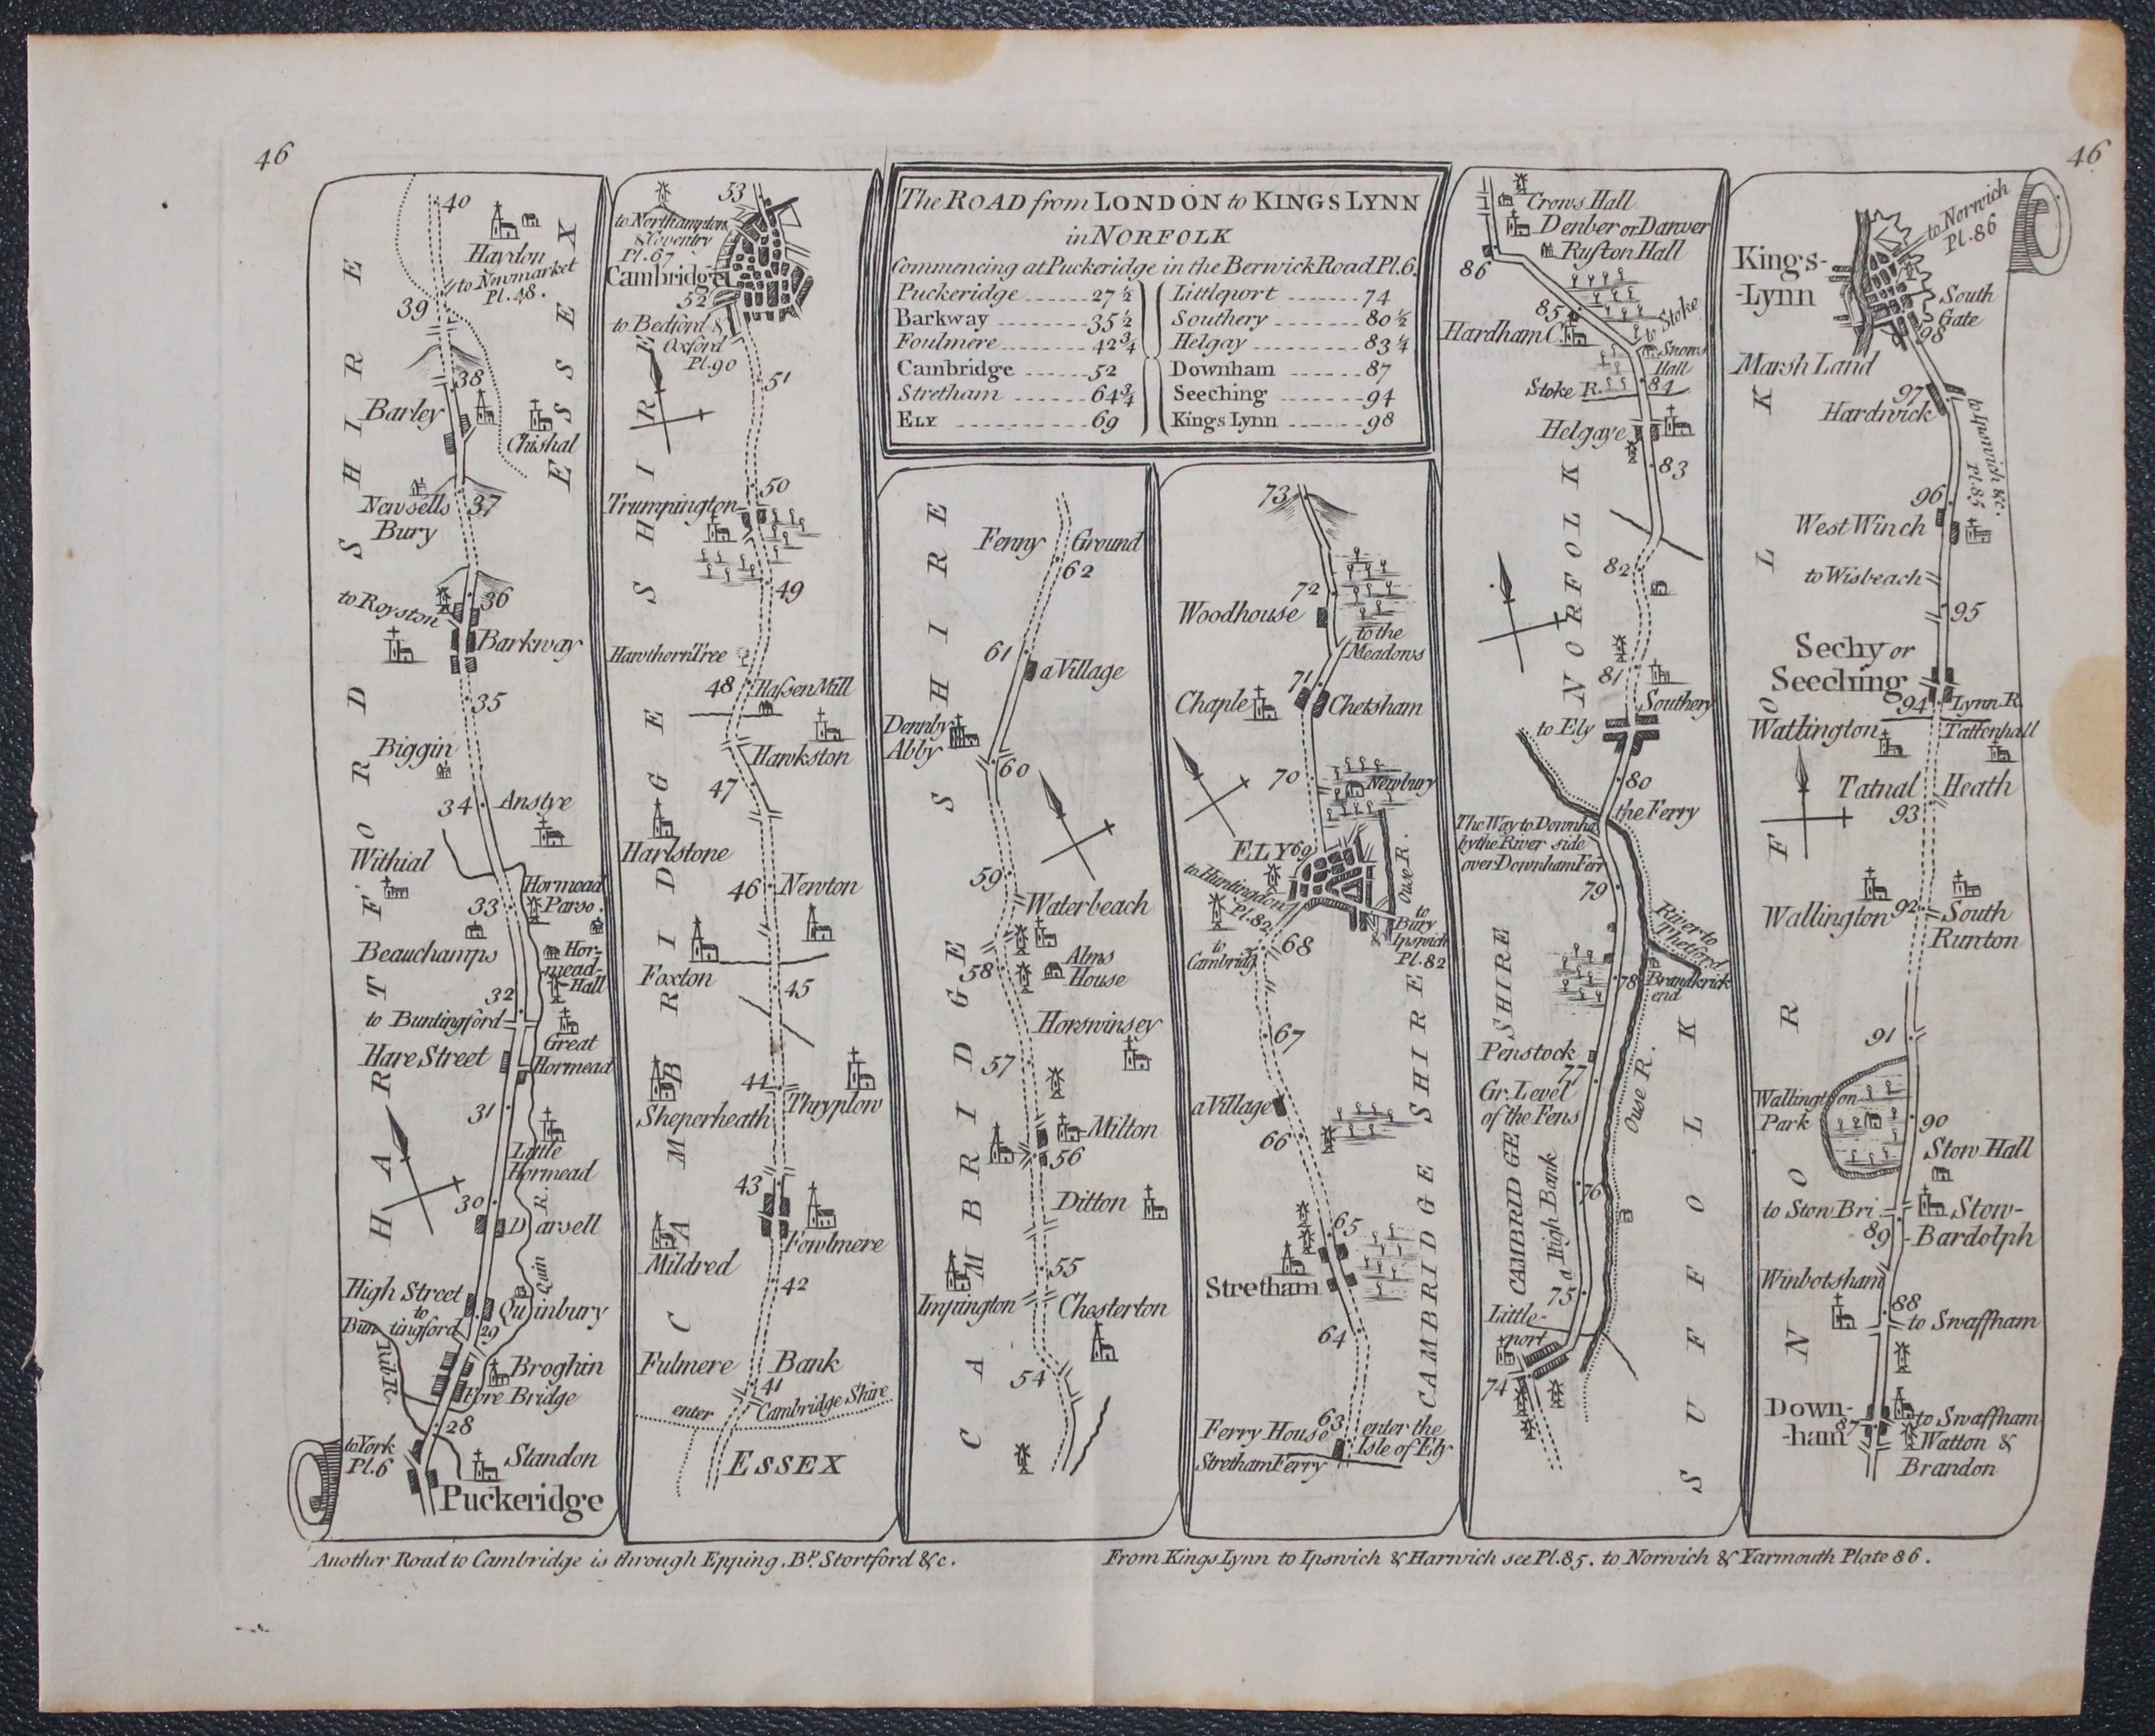 46
46
The ROAD from LONDON to KINGS LYNN
in NORFOLK
Commencing at Puckeridge in the Berwick Road Pl.6.
Puckeridge ...... 27 ½
Barkway ........ 35 ½
Foulmere ....... 42 ¾
Cambridge ...... 52
Stretham ...... 64 ¾
ELY .......... 69
Littleport ....... 74
Southery ....... 80 ½
Helgay ......... 83 ¼
Downham ...... 87
Seeching ....... 94
Kings Lynn ...... 98
40
Haydon
to Newmarket
Pl.48.
39
38
Barley
Chishal
Newsells
Bury
37
to Royston
36
Barkway
35
Biggin
34
Anstye
Withial
Hormead
Parso.
33
Beauchamps
Hor-
mead-
Hall
32
to Buntingford
Great
Hormead
Hare Street
31
Little
Hormead
30
Darsell
Quin R.
High Street
to
Buntingford
Quinbury
29
Rib R.
Broghin
Fore Bridge
28
to York
Pl.6
Standon
Puckeridge
HARTFORDSHIRE
ESSEX
53
to Northampton
& Coventry
Pl.67
Cambridge
52
to Bedford &
Oxford
Pl.90
51
50
Trumpington
49
Hawthorn Tree
48
Hassen Mill
Hawkston
47
Harlstone
46
Newton
Foxton
45
44
Sheperheath
Thryplow
43
Fowlmere
Mildred
42
Fulmere Bank
41
enter Cambridge Shire
ESSEX
CAMBRIDGE SHIRE
Fenny Ground
62
61
a Village
Dennby
Abby
60
59
Waterbeach
58
Alms
House
Horswinsey
57
Milton
56
Ditton
55
Impington
Chesterton
54
CAMBRIDGE SHIRE
73
72
Woodhouse
to the
Meadows
71
Chaple
Chetsham
70
Newbury
ELY 69
Ouse R.
to Huntingdon
Pl.82
to
Bury
Ipswich
Pl.82
to
Cambridg
68
67
a Village
66
65
Stretham
64
63
Ferry House
enter the
Isle of Ely
Stretham Ferry
CAMBRIDGE SHIRE
Crows Hall
Denber or Darwer
Ryston Hall
86
85
to Stoke
Hardham C.
Snows
Hall
Stoke R.
84
Helgaye
83
82
81
Southery
to Ely
80
the Ferry
The Way to Downha
by the River side
over Downham Ferr
79
River to
Thetford
78
Brandkrick
end
Penstock
77
Gr. Level
of the Fens
Ouse R.
76
a High Bank
75
Little-
port
74
NORFOLK
CAMBRIDGE SHIRE
SUFFOLK
to Norwich
Pl.86
Kings-
-Lynn
South
Gate
98
Marsh Land
97
Hardwick
to Ipswich &c.
Pl.85
96
West Winch
to Wisbeach
95
Sechy or
Seeching
94
Lynn R.
Wattington
Tattenhall
Tatnal Heath
93
Wallington
92
South
Runton
91
Wallington
Park
90
Stow Hall
to Stow Bri.
Stow-
-Bardolph
89
Winbotsham
88
to Swaffham
Down-
-ham
87
to Swaffham
Watton &
Brandon
NORFOLK
Another Road to Cambridge is through Epping, Bp. Stortford &c.
From Kings Lynn to Ipswich & Harwich see Pl.85. to Norwich & Yarmouth Plate 86.